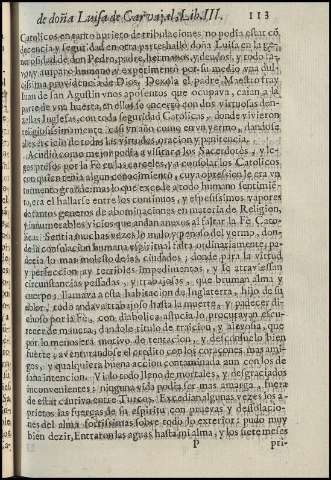 de doña Luisa de Carvajal, Lib. III. 113
Catolicos en tanto aprieto de tribulaciones no podia estar có
decencia y seguridad en otra parte: halló doña Luisa en la ge-
nerosidad de don Pedro, padre, hermanos, y deudos, y todo
y amparo humano, y experimentò por su medio vna dul-
cissima prouidencia de Dios. Dexola el padre Maestro fray
Iuan de san Agustin vnos aposentos que ocupaua, caian a la
parte de vna huerta, en ellos se encerrò con dos virtuosas don-
zellas Inglesas, con toda seguridad Catolicas, donde viuieron
religiosissimamente casi vn año como en vn yermo, dandose
al exercicio de todas las virtudes, oracion y penitencia.
Acudiò como mejor podia a visitar a los Sacerdotes, y le-
gos presos por la Fè en las carceles, y a consolar los Catolicos
con quien tenia algun conocimiento, cuya opression le era vn
tormento grande: mas lo que excede a todo humano sentimié-
to, era el hallarse entre los continuos, y espesissimos vapores
de tantos generos de abominaciones en materia de Religion,
innumerables vicios que andan anexos al faltar la Fè Cato-
lica. Sentia muchas vezes lo malo y penoso del yermo, don-
de la consolacion humana espiritual falta ordinariamente, pa-
decia lo mas molesto de las ciudades, donde para la virtud
y perfeccion, ay terribles impedimentos, y se atrauiessan
circunstancias pesadas, y trabajosas, que bruman alma y
cuerpo, llamaua a esta habitacion de Inglaterra, hijo de su
dolor, todo andaua trabajoso hasta la muerte, y padecer di-
choso por la Fè, con diabolica astucia lo procurauan escu-
recer de manera, dandole titulo de traicion, y aleuosia, que
por lo menos era motiuo de tentacion, y desconsuelo bien
fuerte, auenturandose el credito con los coraçones mas ami-
gos, y qualquiera buena accion contaminada aun con los de
sana intencion. Vido todo lleno de mortales, y desgraciados
inconuenientes: ninguna vida podia ser mas amarga, fuera
de estar cautiua entre Turcos. Excedian algunas vezes los a-
prietos las fuerças de su espiritu con prueuas y desolacio-
nes del alma fortissimas sobre todo lo exterior: pudo muy
bien dezir, Entraron las aguas hasta mi alma, y los siete meses
P pri-